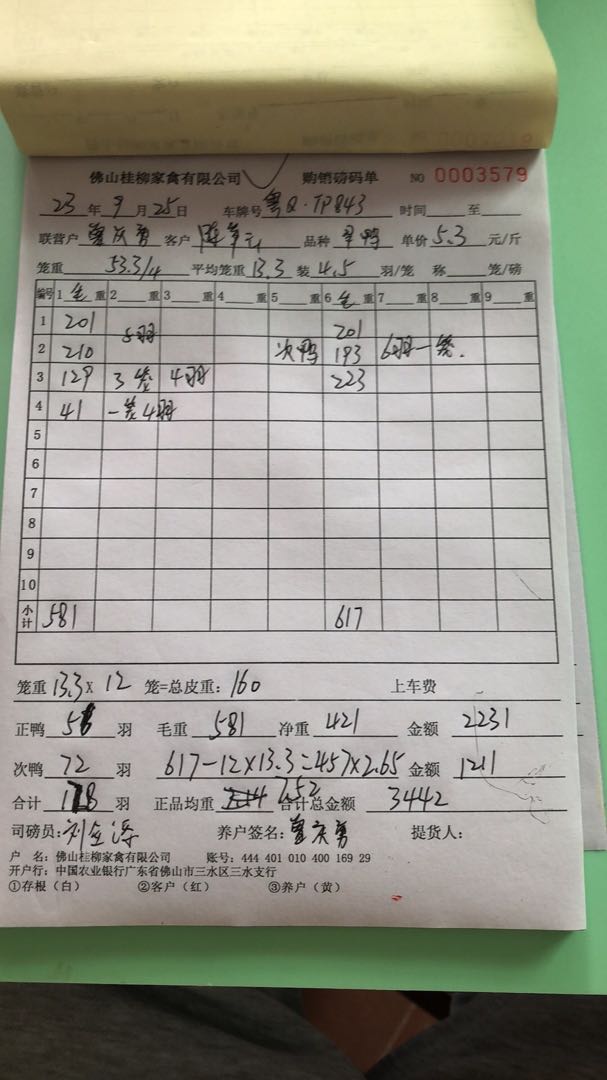 佛山桂柳家禽有限公司 购销磅码单 NO 0003579
23年9月25日 车牌号 粤Q·TP843 时间 至
联营户 客户 品种 单鸭 单价 5.3 元/斤
笼重 53.3/4 平均笼重 13.3 装 4.5 羽/笼 称 笼/磅
编号 1 毛 重 2 重 3 重 4 重 5 重 6 毛 重 7 重 8 重 9 重
1 201 5羽 201
2 210 次鸭 193 6羽一笼.
3 129 3笼 4羽 223
4 41 一笼4羽
5
6
7
8
9
10
小计 581 617
笼重 13.3 × 12 笼=总皮重: 160 上车费
正鸭 羽 毛重 581 净重 421 金额 2231
次鸭 72 羽 617-12×13.3=457×2.65 金额 1211
合计 羽 正品均重 7.52 合计总金额 3442
司磅员: 养户签名: 提货人:
户 名: 佛山桂柳家禽有限公司 账号: 444 401 010 400 169 29
开户行: 中国农业银行广东省佛山市三水区三水支行
①存根（白） ②客户（红） ③养户（黄）